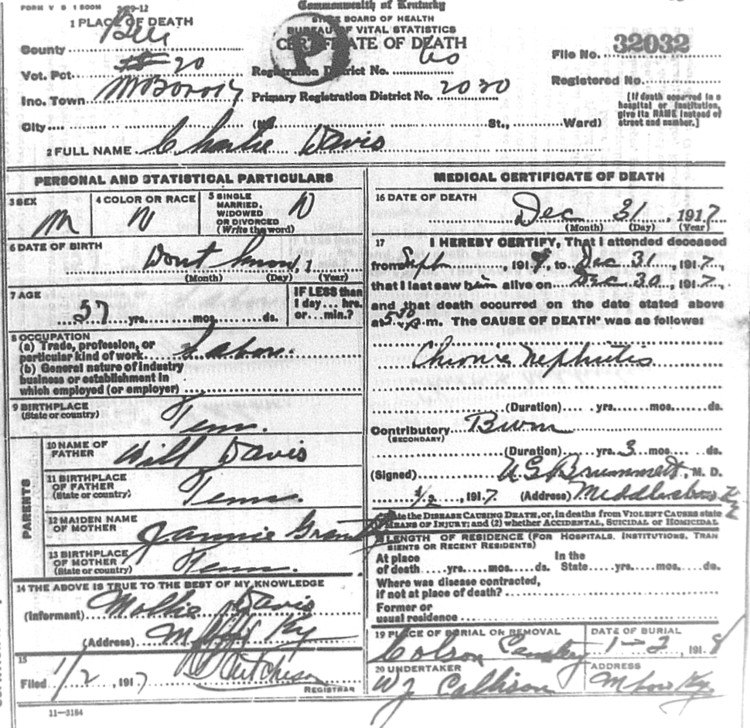 FORM V S 1 500M 2-29-12
Commonwealth of Kentucky
STATE BOARD OF HEALTH
BUREAU OF VITAL STATISTICS
CERTIFICATE OF DEATH
1 PLACE OF DEATH
County Bell
Vot. Pct. 20
Inc. Town
City
Registration District No. 60
Primary Registration District No. 2030
(No. St., Ward)
File No. 32032
Registered No.
[If death occurred in a hospital or institution, give its NAME instead of street and number.]
2 FULL NAME Charlie Davis
PERSONAL AND STATISTICAL PARTICULARS
3 SEX M
4 COLOR OR RACE N
5 SINGLE MARRIED, WIDOWED OR DIVORCED (Write the word)
6 DATE OF BIRTH Dont know, 1
(Month) (Day) (Year)
7 AGE 57 yrs. mos. ds.
IF LESS than 1 day... hrs. or ... min.?
8 OCCUPATION
(a) Trade, profession, or particular kind of work Labor.
(b) General nature of industry business or establishment in which employed (or employer)
9 BIRTHPLACE (State or country) Tenn.
PARENTS
10 NAME OF FATHER Will Davis
11 BIRTHPLACE OF FATHER (State or country) Tenn.
12 MAIDEN NAME OF MOTHER Jannie
13 BIRTHPLACE OF MOTHER (State or country) Tenn.
14 THE ABOVE IS TRUE TO THE BEST OF MY KNOWLEDGE
(Informant) Mollie Davis
(Address) Ky
15
Filed 1/2, 1917
REGISTRAR
11-3184
MEDICAL CERTIFICATE OF DEATH
16 DATE OF DEATH
Dec 31, 1917
(Month) (Day) (Year)
17 I HEREBY CERTIFY, That I attended deceased
from Sept 191 to Dec 31, 1917
that I last saw him alive on Dec 30, 1917
and that death occurred on the date stated above
at 5:30 p.m. The CAUSE OF DEATH* was as follows:
Chronic Nephritis
(Duration) yrs. mos. ds.
Contributory (SECONDARY)
(Duration) yrs. 3 mos. ds.
(Signed) U S Brummett, M. D.
1/2, 1917 (Address) Middlesboro Ky
State the DISEASE CAUSING DEATH, or, in deaths from VIOLENT CAUSES state
MEANS OF INJURY; and (2) whether ACCIDENTAL, SUICIDAL or HOMICIDAL
LENGTH OF RESIDENCE (FOR HOSPITALS, INSTITUTIONS, TRANSIENTS OR RECENT RESIDENTS)
At place of death yrs. mos. ds. In the State yrs. mos. ds.
Where was disease contracted, if not at place of death?
Former or usual residence
19 PLACE OF BURIAL OR REMOVAL Colson Cemetery
DATE OF BURIAL 1-2, 1918
20 UNDERTAKER W J Callison
ADDRESS Ky.